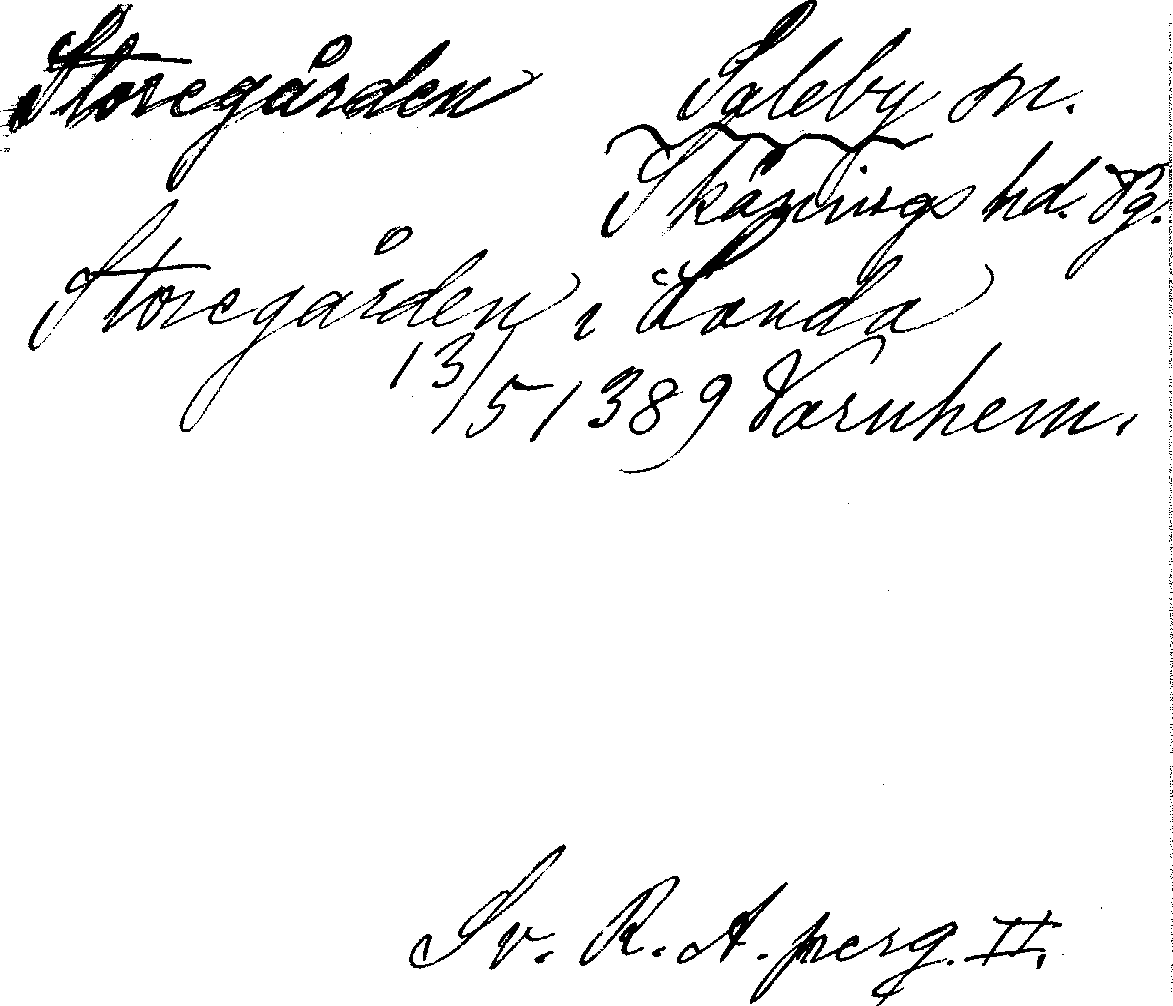 Storegården Saleby sn.
Skånings hd. Vg.
Storegården i
13/5 1389 Varnhem.
Sv. R. A. perg. II.